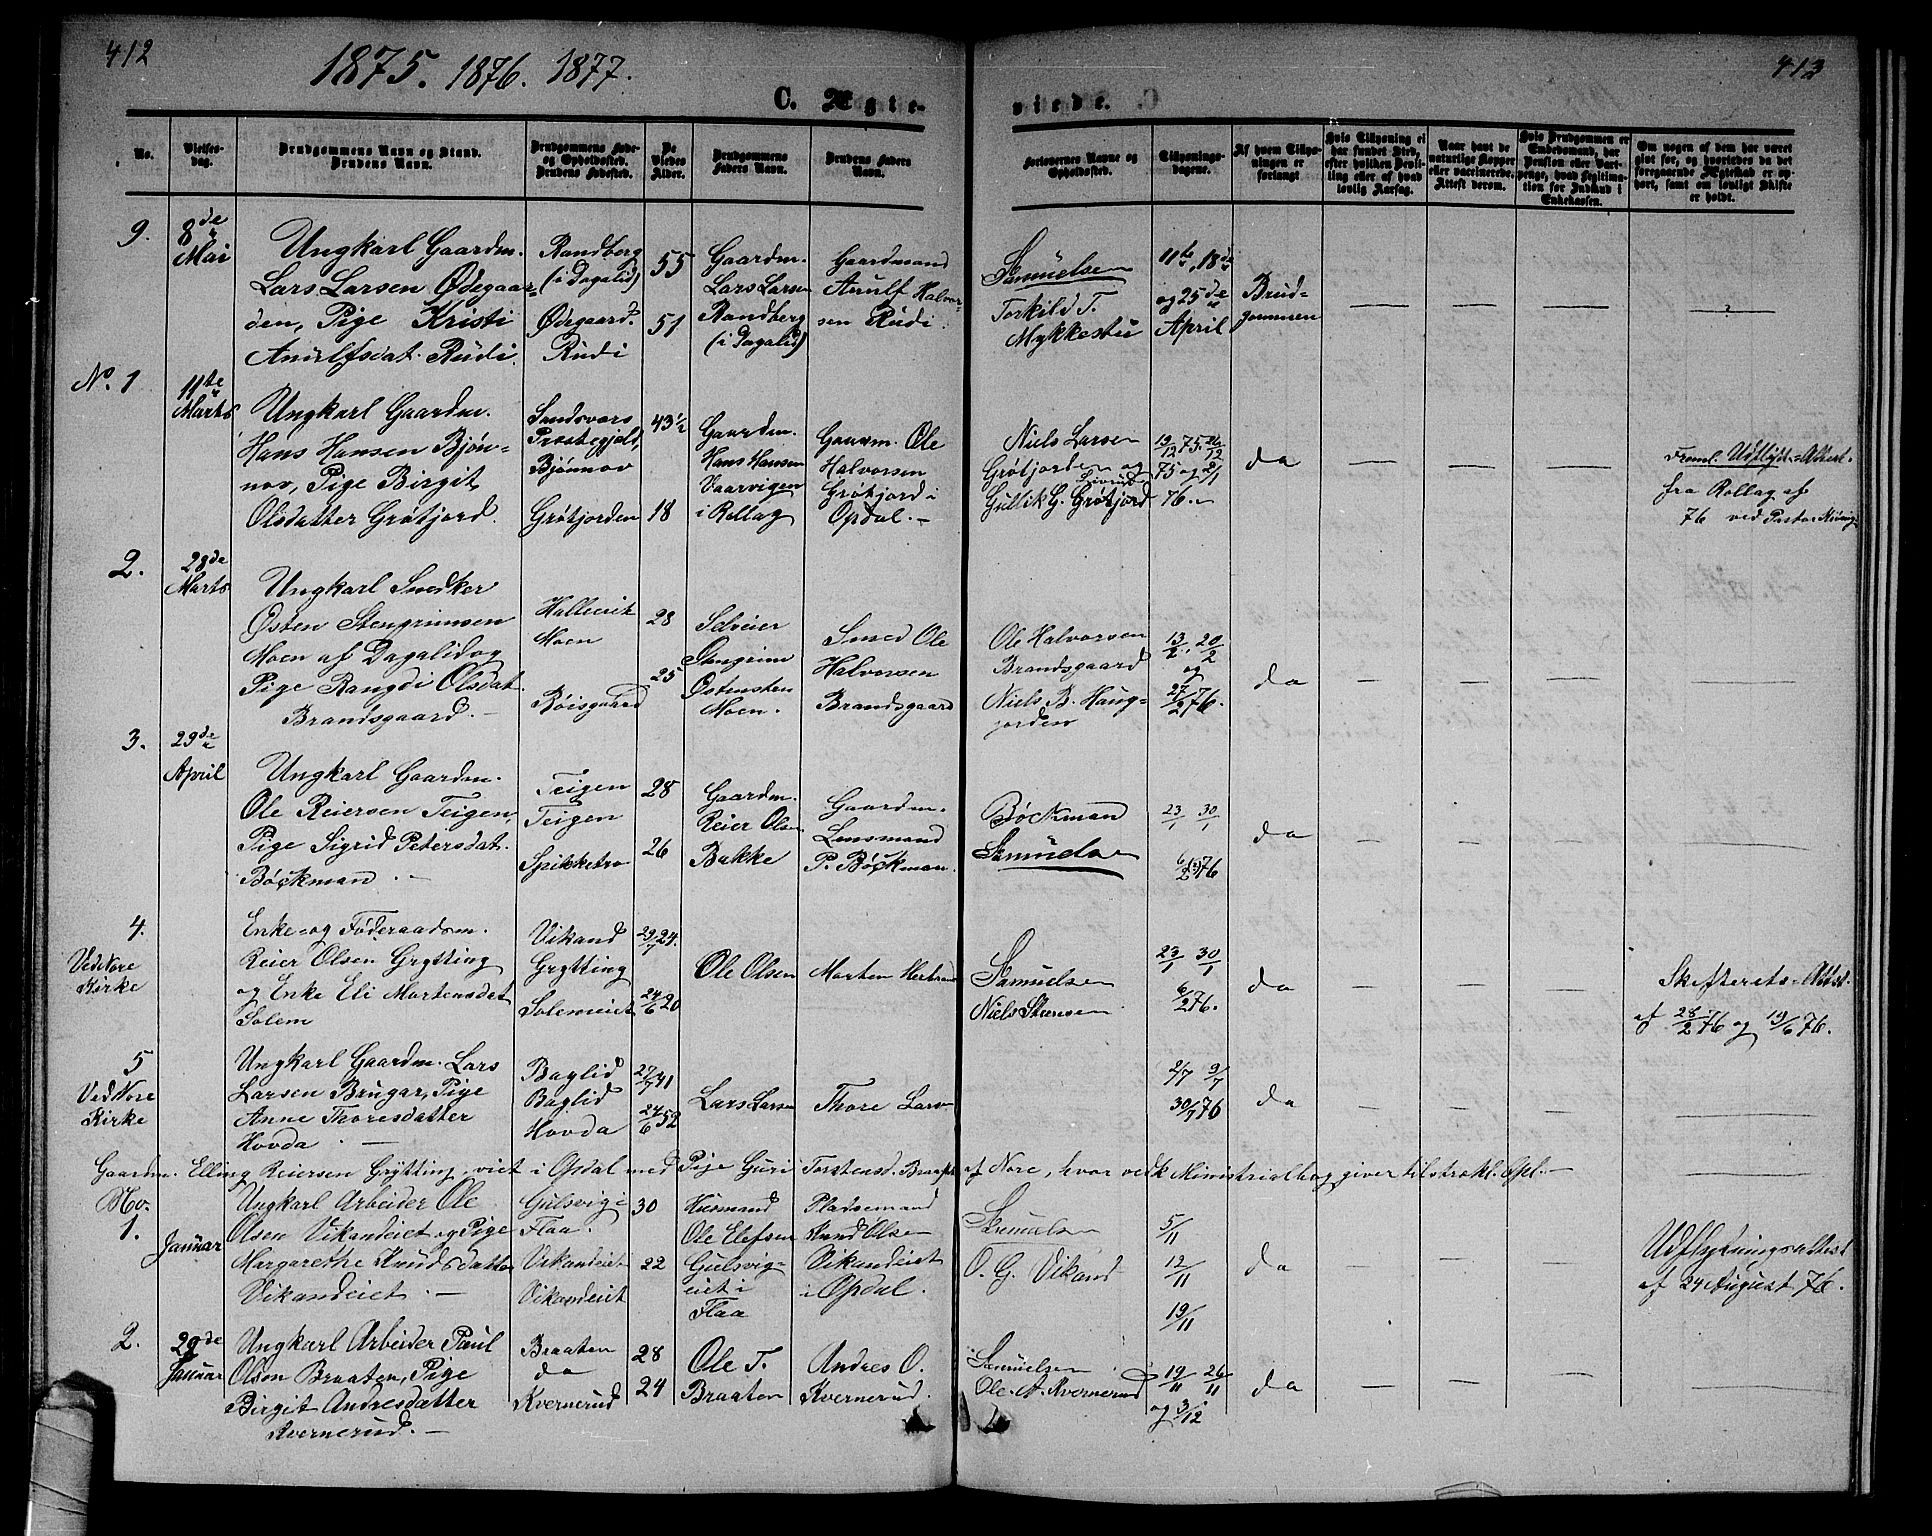 412
413
1875. 1876. 1877.
C. Ægte-
viede.
No.
Vielses-
dag.
Brudgommens Navn og Stand.
Brudens Navn.
Brudgommens Føde-
og Opholdssted.
Brudens Fødested.
De
Viedes
Alder.
Brudgommens
Faders Navn.
Brudens Faders
Navn.
Forlovernes Navne og
Opholdssted.
Tillysnings-
dagene.
Af hvem Tillys-
ningen er
forlangt
Hvis Tillysning ei
har fundet Sted,
efter hvilken Bevil-
ling eller af hvad
lovlig Aarsag.
Naar havt de
naturlige Kopper
eller vaccinerede.
Attest derom.
Hvis Brudgommen er
Embedsmand, har
Pension eller Vart-
penge, hvad Legitima-
tion for Indskud i
Enkekassen.
Om nogen af dem har været
gift før, og hvorledes da det
foregaaende Ægteskab er op-
hørt, samt om lovligt Skifte
er holdt.
9.
8de
Mai
Ungkarl Gaardm.
Lars Larsen Ødegaar-
den, Pige Kristi
Anulfsdat. Rudi.
Randberg
(i Dagalid)
Ødegaard.
Rudi
55
51
Gaardm.
Lars Larsen
Randberg
(i Dagalid)
Gaardmand
Anulf Halvor-
sen Rudi.
Samuelsen
Torkild T.
Mykkestu
11te, 18de
og 25de
April
Brud-
gommen
No. 1
11te
Marts
Ungkarl Gaardm.
Hans Hansen Bjøn-
nov, Pige Birgit
Olsdatter Grøtjord.
Sandsvors
Præstegjeld,
Bjønnov
Grøtjorden
43 1/2
18
Gaardm.
Hans Hansen
Vaarvigen
i Rollag
Gaarm. Ole
Halvorsen
Grøtjord i
Opdal.-
Niels Larsen
Grøtjorden og
Gullik G. Grøtjord
19/12 75. 26/12
75 og 2/1
76.
da
Freml. Udflytt=Attest.
fra Rollag af
76 ved Pastor
2.
28de
Marts
Ungkarl Snedker
Østen Stengrimsen
Moen af Dagalid og
Pige Rangdi Olsdat.
Brandsgaard.-
Moen
Røisgaard
28
25
Selveier
Stengrim
Østensten
Moen.
Smed Ole
Halvorsen
Brandsgaard
Ole Halvorsen
Brandsgaard
Niels B. Haug-
jorden
13/2, 20/2
og
27/2 76.
da
3.
29de
April
Ungkarl Gaardm.
Ole Reiersen Teigen,
Pige Sigrid Petersdat.
Böckman.-
Teigen
Teigen
Spikketro
28
26
Gaardm.
Reier Olsen
Bakke
Gaardm.
Lensmand
P. Böckman.
Böckman
Samuelsen
23/1 30/1
6/2 76
da
4.
Ved Nore
Kirke
Enke- og Föderaadsm.
Reier Olsen Grytting
og Enke Eli Mortensdat
Solem
Vikand
Grytting
Solemeiet
29/7 24.
24/6 20
Ole Olsen
Morten
Samuelsen
Niels Steensen
23/1 30/1
6/2 76.
da
Skifterets-Attst.
af 28/2 76 og 19/6 76.
5
Ved Nore
Kirke
Ungkarl Gaardm. Lars
Larsen Brugar, Pige
Anne Thoresdatter
Hovda.-
Baglid
Baglid
Hovda
27/7 41
24/6 52
Lars Larsen
Thore Larsen
2/7 9/7
30/7 76
da
Gaardm. Elling Reiersen Grytting, viet i Opdal med Pige Guri Torstensd. af Nore, hvor vedk Ministrialbog giver tilstrækl. Opl.-
No.
1.
Januar
Ungkarl Arbeider Ole
Olsen Vikandeiet og Pige
Margarethe Knudsdatter
Vikandeiet.-
Gulsvig i
Flaa.
Vikandeiet
Vikandeiet
30
22
Husmand
Ole Elefsen
Gulsvig-
eiet i
Flaa
Pladsemand
Knud Olsen
Vikandeiet
i Opdal.
Samuelsen
O. G. Vikand
5/11
12/11
19/11
da
Udflytningsattest
af 24 August 76.
2.
29de
Januar
Ungkarl Arbeider Paul
Olsen Braaten, Pige
Birgit Andresdatter
Kvernerud.-
Braaten
da
Kvernerud
28
24
Ole T.
Braaten
Andres O.
Kvernerud.
Samuelsen
Ole A. Kvernerud
19/11 26/11
og 3/12
da